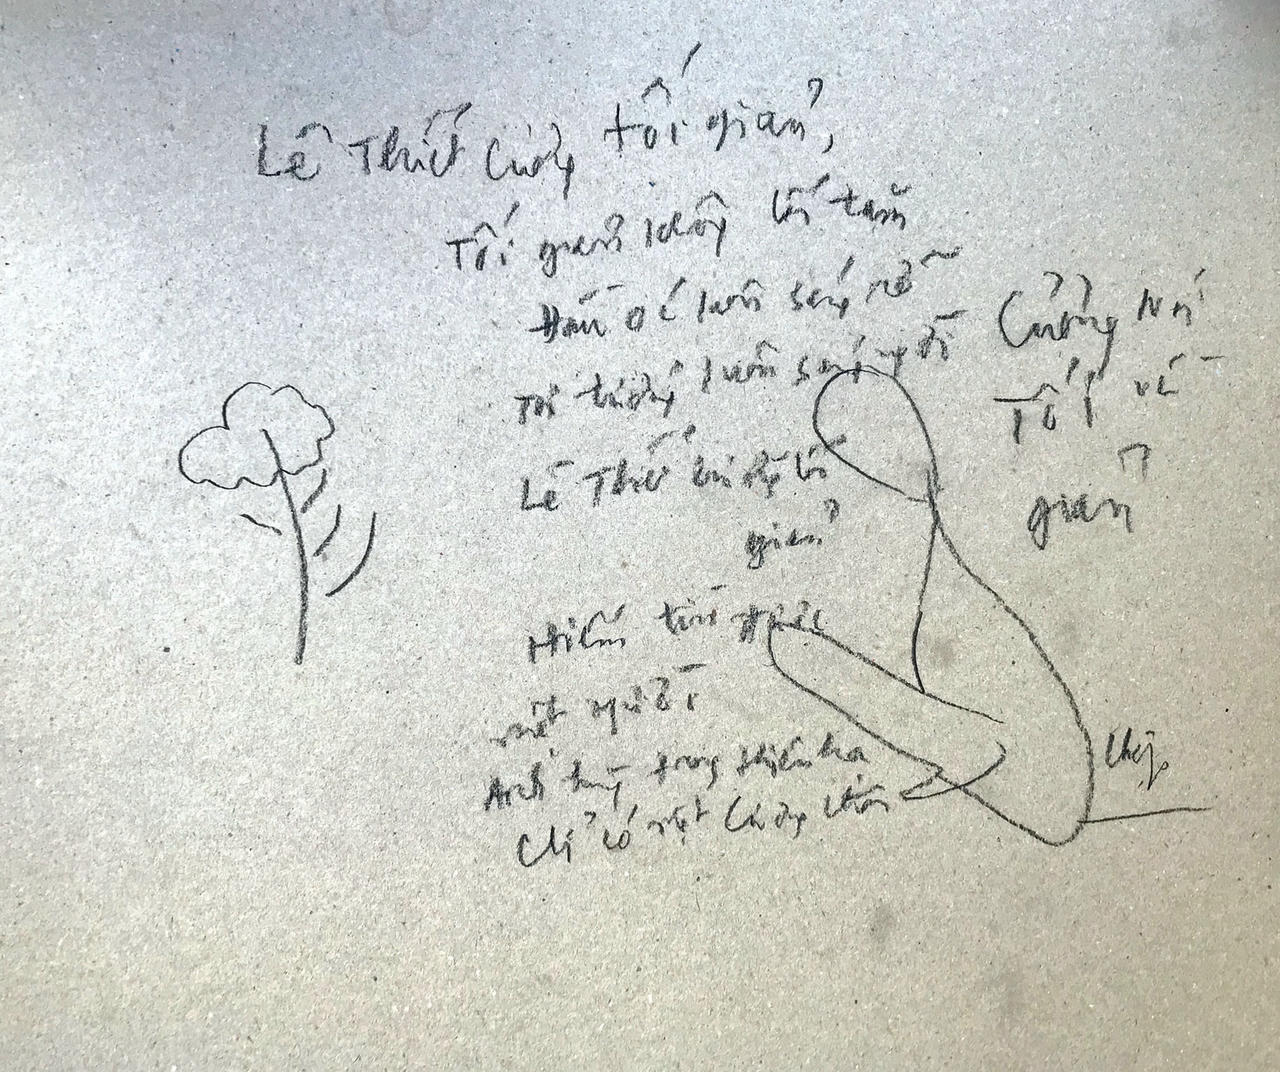 Lê Thiết Cương tối giản,
Tối giản không tối tăm
Đầu óc luôn sáng rõ
Tư tưởng luôn sáng ngời
Lê Thiết Cương tối
giản
Hiếm tìm được
một người
Anh hùng trong thiên hạ
Chỉ có một Cương thôi
Cương
Tối
giản